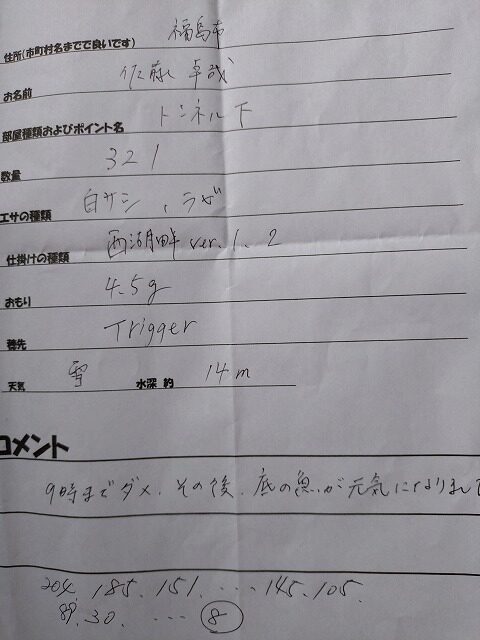 住所(市町村名までで良いです) 福島市
お名前 佐藤 卓哉
部屋種類およびポイント名 トンネル下
数量 321
エサの種類 白サシ、ラビ
仕掛けの種類 西湖畔 ver.1.2
おもり 4.5g
穂先 Trigger
天気 雪 水深 約 14m
コメント
9時までダメ、その後、底の魚が元気になりまして
204. 185. 151. ... 145. 105.
89. 30. ... 8